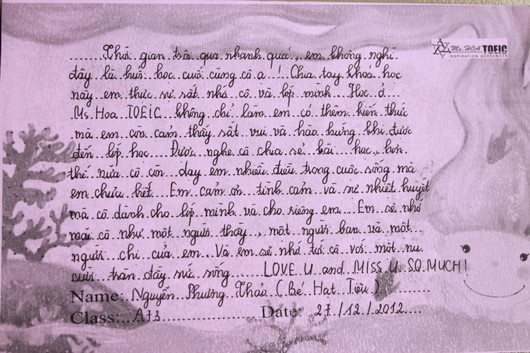 Ms. HOA TOEIC
INSPIRATION
.......Thời gian trôi qua nhanh quá!, em không nghĩ
đây là buổi học cuối cùng cô ạ!! Chia tay khóa học
này em thực sự rất nhớ cô và lớp mình. Học ở
Ms Hoa TOEIC không chỉ làm em có thêm kiến thức
mà em còn cảm thấy rất vui và hào hứng khi được
đến lớp học... Được nghe cô chia sẻ bài học, hơn
thế nữa cô còn dạy em nhiều điều trong cuộc sống mà
em chưa biết... Em cảm ơn tình cảm và sự nhiệt huyết
mà cô dành cho lớp mình và cho riêng em... Em sẽ nhớ
mãi cô như một người thầy, một người bạn và một
người chị của em... Và em sẽ nhớ tới cô với một nụ
cười tràn đầy sức sống....... LOVE U and MISS U SO MUCH!
Name: Nguyễn Phương Thảo (Bé Hạt Tiêu)
Class: A73 Date: 27/12/2012